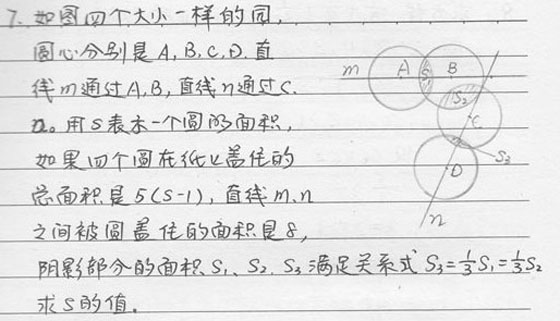 7. 如图四个大小一样的园,
圆心分别是A,B,C,D.直
线m通过A,B,直线n通过C.
D。用S表示一个圆的面积,
如果四个圆在纸上盖住的
总面积是5(S-1),直线m,n
之间被圆盖住的面积是8,
阴影部分的面积S₁、S₂、S₃满足关系式S₃=⅓S₁=⅓S₂
求S的值.
m
A
S₁
B
S₂
C
S₃
D
n